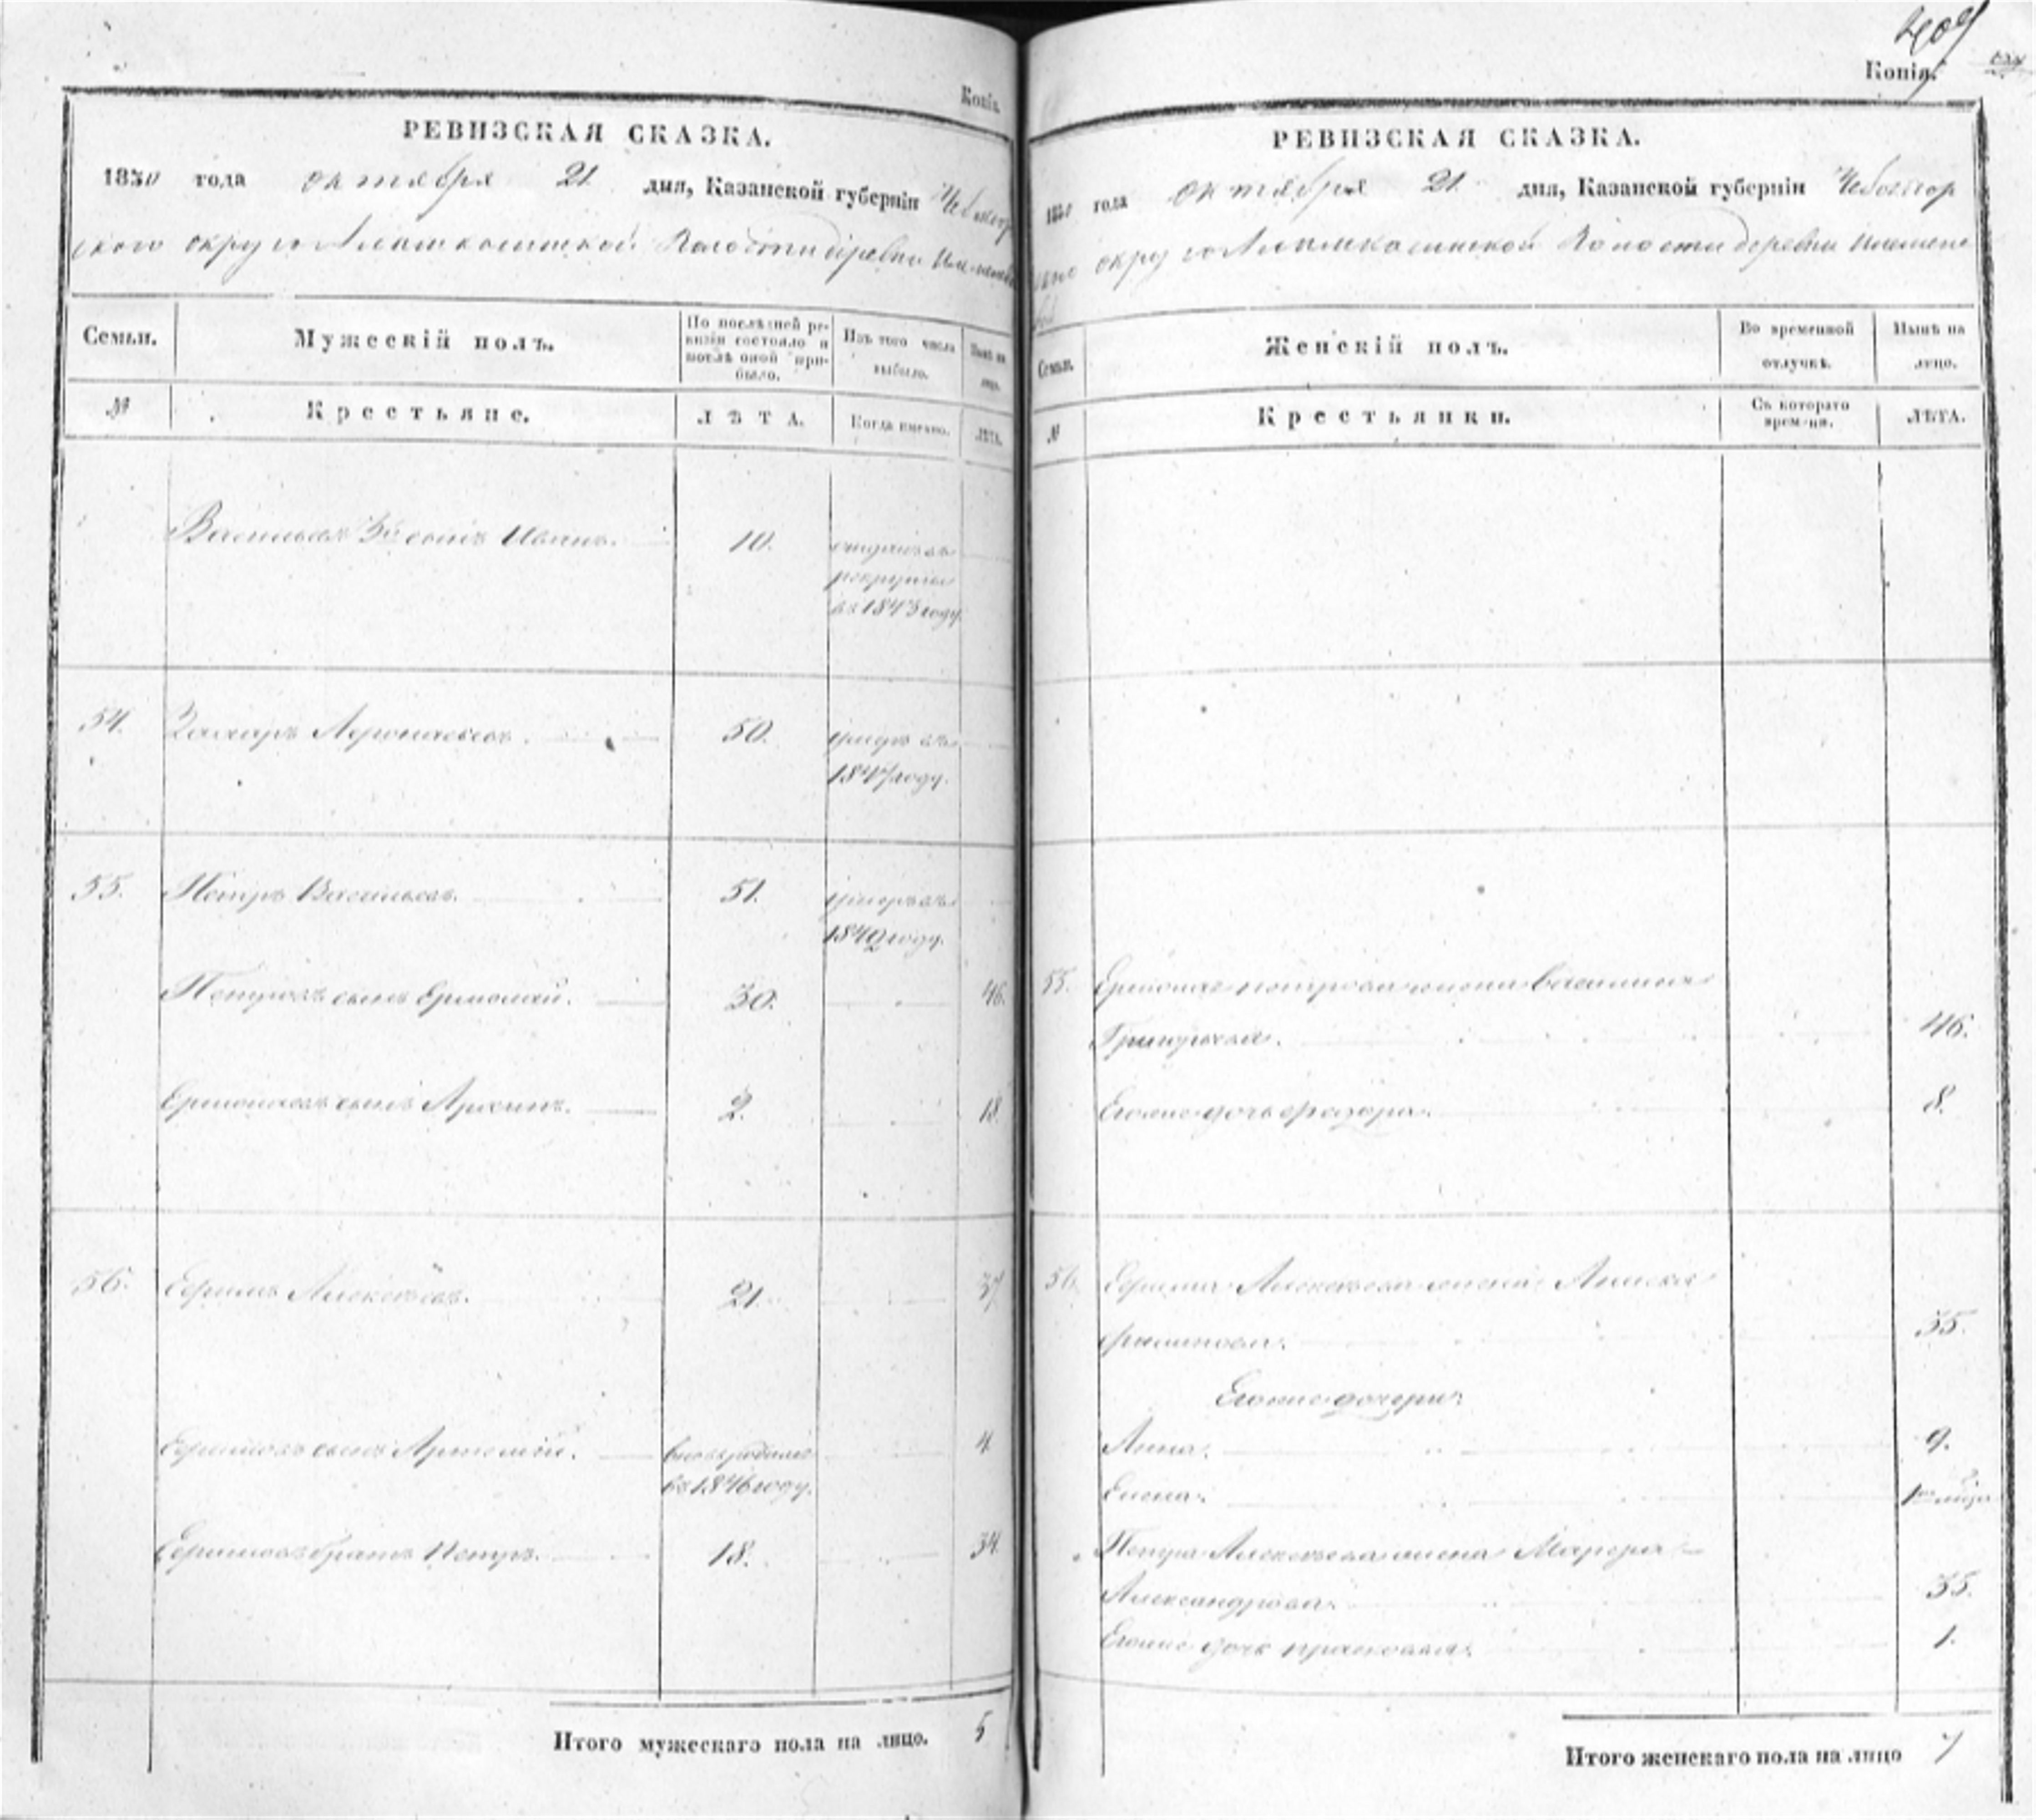 Копія.
РЕВИЗСКАЯ СКАЗКА.
1850 года октября 21 дня, Казанской губерніи Чебоксар
ского округа Волости деревни
Семьи.
Мужескій полъ.
По послѣдней ре-
визіи состояло и
послѣ оной при-
было.
Изъ того числа
выбыло.
Нынѣ на
лицо.
№
Крестьяне.
ЛѢТА.
Когда именно.
ЛѢТА.
Васильевъ 3й сынъ Иванъ.
10.
отданъ въ
рекруты
въ 1843 году.
54.
Захаръ
50.
умеръ въ
1847 году.
55.
Петръ Васильевъ.
51.
умеръ въ
1840 году.
Петровъ сынъ Ермолай.
30.
46.
Ермолаевъ сынъ Архипъ.
2.
18.
56.
Ефимъ Алексѣевъ.
21.
37
Ефимовъ сынъ Артемій.
вновь рожденъ
въ 1846 году.
4
Ефимовъ братъ Петръ.
18.
34.
Итого мужескаго пола на лицо. 5
Копія.
РЕВИЗСКАЯ СКАЗКА.
1850 года октября 21 дня, Казанской губерніи Чебоксар
ского округа Волости деревни
Семьи.
Женскій полъ.
Во временной
отлучкѣ.
Нынѣ на
лицо.
№
Крестьянки.
Съ котораго
времени.
ЛѢТА.
55. Ермолая Петрова жена Василиса
Григорьева.
46.
Егоже дочь Федора.
8.
56. Ефима Алексѣева жена
Филипова.
35.
Егоже дочери:
Анна.
9.
Елена.
Петра Алексѣева жена Марфа
Александрова.
35.
Егоже дочь Прасковья.
1.
Итого женскаго пола на лицо 7